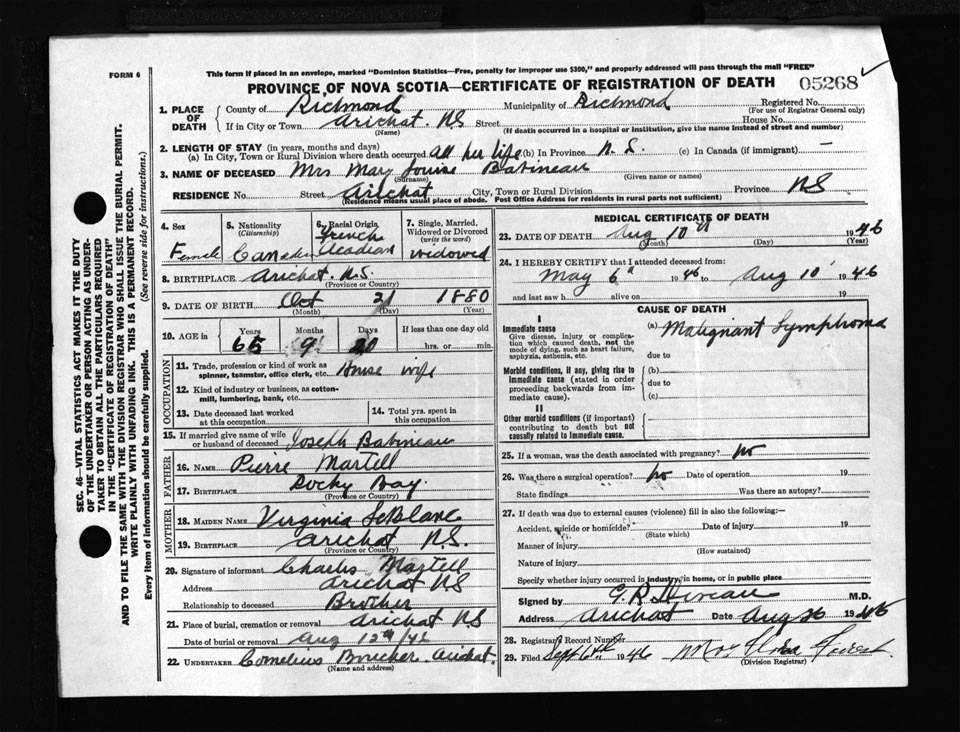 FORM 6
This form if placed in an envelope, marked "Dominion Statistics—Free, penalty for improper use $300," and properly addressed will pass through the mail "FREE"
PROVINCE OF NOVA SCOTIA—CERTIFICATE OF REGISTRATION OF DEATH 05268
1. PLACE OF DEATH County of Richmond Municipality of Richmond Registered No.
(For use of Registrar General only)
If in City or Town Arichat. N.S Street House No.
(Name) (If death occurred in a hospital or institution, give the name instead of street and number)
2. LENGTH OF STAY (in years, months and days)
(a) In City, Town or Rural Division where death occurred all her life (b) In Province N. S. (c) In Canada (if immigrant) —
3. NAME OF DECEASED Mrs Mary Louise Babineau
(Surname) (Given name or names)
RESIDENCE No. Street Arichat City, Town or Rural Division Province NS
(Residence means usual place of abode. Post Office Address for residents in rural parts not sufficient)
4. Sex Female
5. Nationality (Citizenship) Canadian
6. Racial Origin French Acadian
7. Single, Married, Widowed or Divorced (write the word) widowed
8. BIRTHPLACE Arichat. N.S.
(Province or Country)
9. DATE OF BIRTH Oct 21 1880
(Month) (Day) (Year)
10. AGE in Years 65 Months 9 Days 20 If less than one day old
hrs. or min.
OCCUPATION
11. Trade, profession or kind of work as spinner, teamster, office clerk, etc. House wife
12. Kind of industry or business, as cotton-mill, lumbering, bank, etc.
13. Date deceased last worked at this occupation
14. Total yrs. spent in this occupation
15. If married give name of wife or husband of deceased Joseph Babineau
FATHER
16. NAME Pierre Martell
17. BIRTHPLACE Rocky Bay.
(Province or Country)
MOTHER
18. MAIDEN NAME Virginia LeBlanc
19. BIRTHPLACE Arichat N.S.
(Province or Country)
20. Signature of informant Charles Martell
Address Arichat NS
Relationship to deceased Brother
21. Place of burial, cremation or removal Arichat NS
Date of burial or removal Aug 12th/46
22. UNDERTAKER Cornelius Boucher. Arichat.
(Name and address)
MEDICAL CERTIFICATE OF DEATH
23. DATE OF DEATH Aug 10th 1946
(Month) (Day) (Year)
24. I HEREBY CERTIFY that I attended deceased from:
May 6th 1946 to Aug 10 1946
and last saw h alive on 19
CAUSE OF DEATH
I
Immediate cause
Give disease, injury or complication which caused death, not the mode of dying, such as heart failure, asphyxia, asthenia, etc.
(a) Malignant Lymphoma
due to
Morbid conditions, if any, giving rise to immediate cause (stated in order proceeding backwards from immediate cause).
(b)
due to
(c)
II
Other morbid conditions (if important) contributing to death but not causally related to immediate cause.
25. If a woman, was the death associated with pregnancy? No
26. Was there a surgical operation? No Date of operation 19
State findings Was there an autopsy?
27. If death was due to external causes (violence) fill in also the following:—
Accident, suicide or homicide? Date of injury 19
(State which)
Manner of injury
(How sustained)
Nature of injury
Specify whether injury occurred in industry, in home, or in public place
Signed by G. R. Deveau M.D.
Address Arichat Date Aug 26 1946
28. Registrar's Record Number
29. Filed Sept 6th 1946 Mrs
(Division Registrar)
SEC. 46—VITAL STATISTICS ACT MAKES IT THE DUTY
OF THE UNDERTAKER OR PERSON ACTING AS UNDER-
TAKER TO OBTAIN ALL THE PARTICULARS REQUIRED
IN THE "CERTIFICATE OF REGISTRATION OF DEATH"
AND TO FILE THE SAME WITH THE DIVISION REGISTRAR WHO SHALL ISSUE THE BURIAL PERMIT.
WRITE PLAINLY WITH UNFADING INK. THIS IS A PERMANENT RECORD.
Every item of information should be carefully supplied. (See reverse side for instructions.)